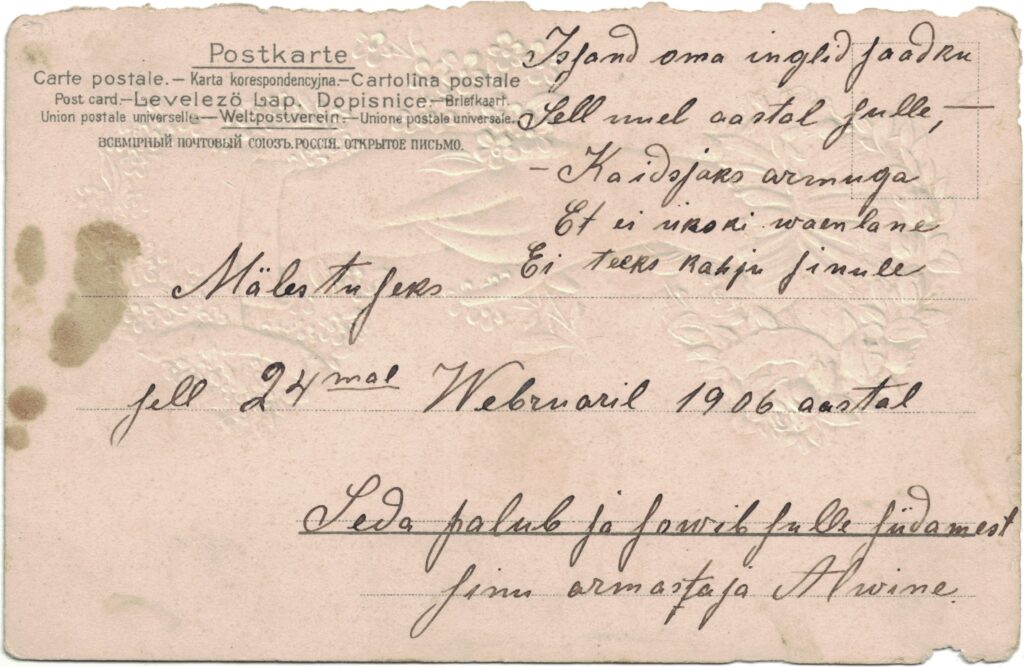 Postkarte
Carte postale.—Karta korespondencyjna.—Cartolina postale
Post card.—Levelező Lap. Dopisnice.—Briefkaart.
Union postale universelle—Weltpostverein.—Unione postale universale.
ВСЕМІРНЫЙ ПОЧТОВЫЙ СОЮЗЪ. РОССІЯ. ОТКРЫТОЕ ПИСЬМО.
Issand oma inglid saadku
Sell uuel aastal sulle, —
— Kaidsjaks armuga
Et ei ükski waenlane
Ei teeks kahju sinule
Mälestuseks
sell 24 mal Webruaril 1906 aastal
Seda palub ja sowib sulle südamest
sinu armastaja Alwine.